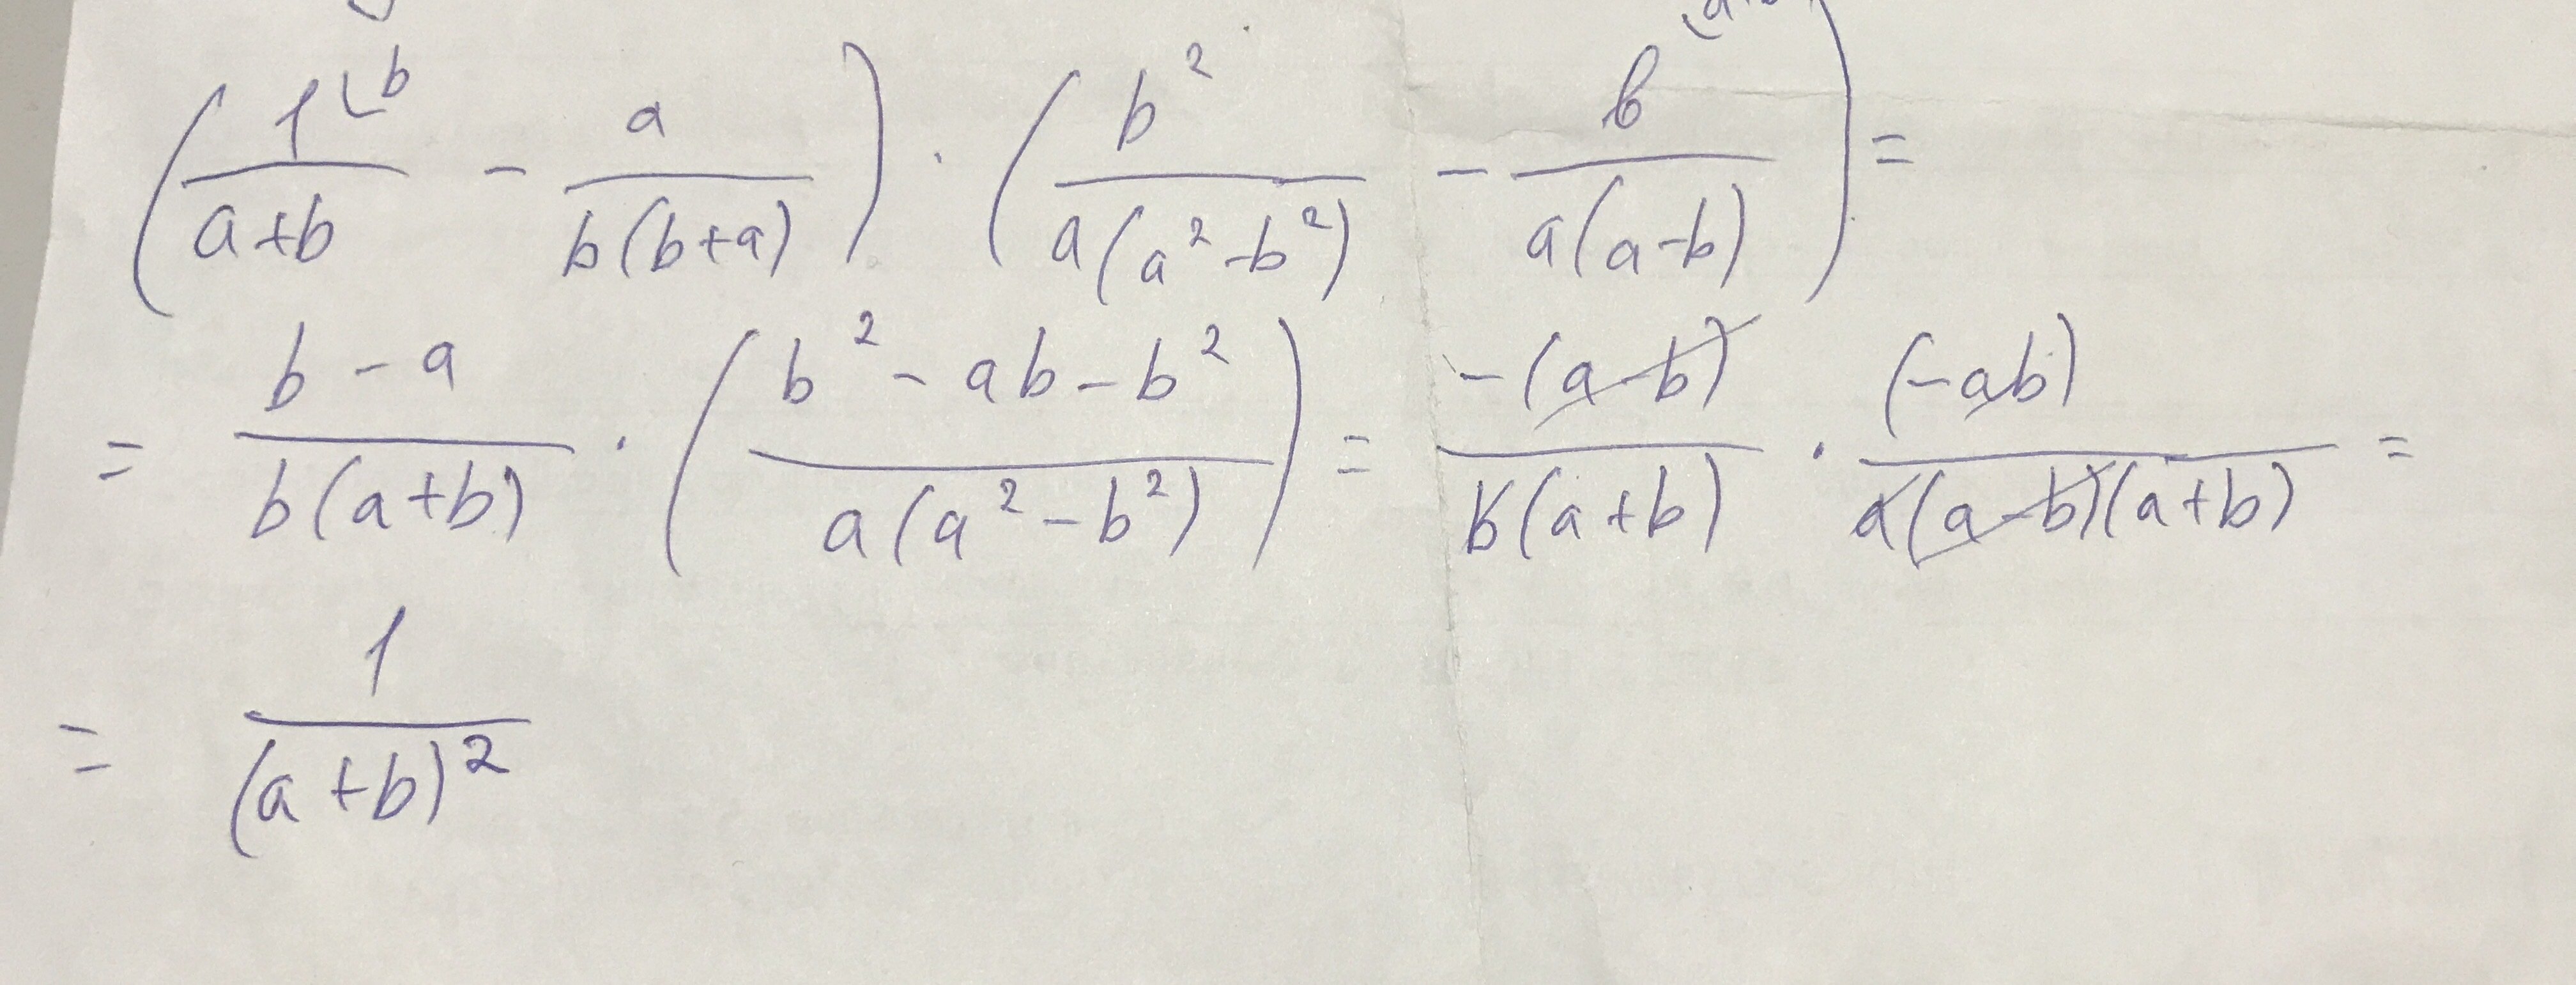 (1⌊b/(a+b) - a/(b(b+a))) · (b²/(a(a²-b²)) - b/(a(a-b))) =
= (b-a)/(b(a+b)) · ((b²-ab-b²)/(a(a²-b²))) = -(a-b)/(b(a+b)) · (-ab)/(a(a-b)(a+b)) =
= 1/(a+b)²